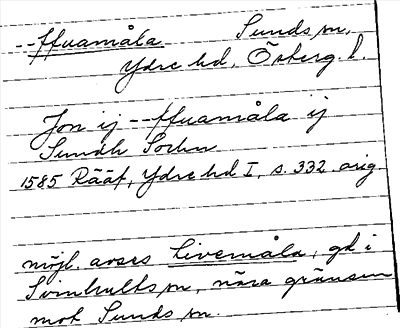 --ffuamåla Sunds sn.
Ydre hd, Österg. l.
Jon ij --ffuamåla ij
Sundh Sochn
1585 Rääf, Ydre hd I, s. 332 orig.
möjl. avses Livemåla, gd i
Svinhults sn, nära gränsen
mot Sunds sn.